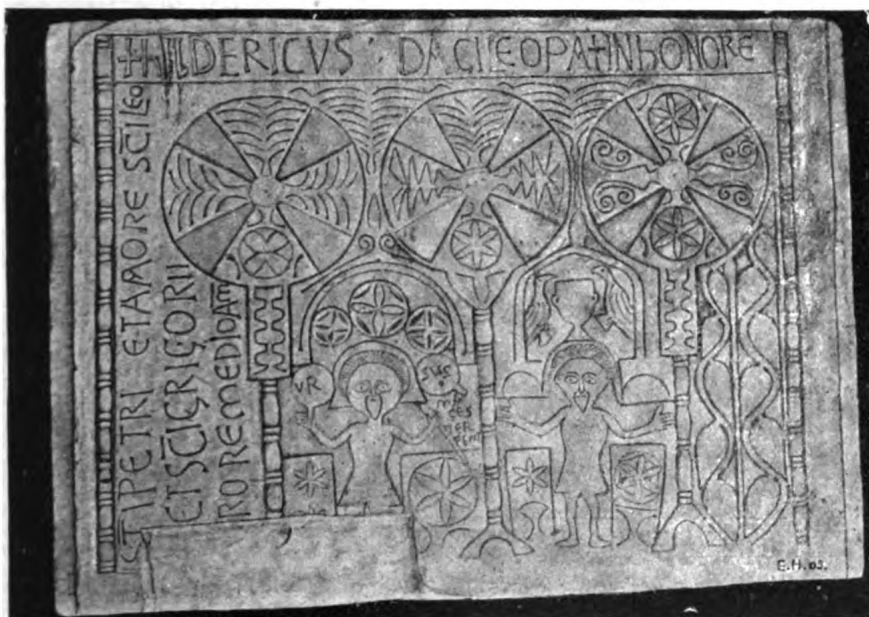 +hILDERICVS DACILEOPA+INhONORE
S̄TI PETRI ETAMORE SC̄I LEO
ET SC̄I GRIGORII
RO REMEDIO AM
VR
SVS
E.H. 03.